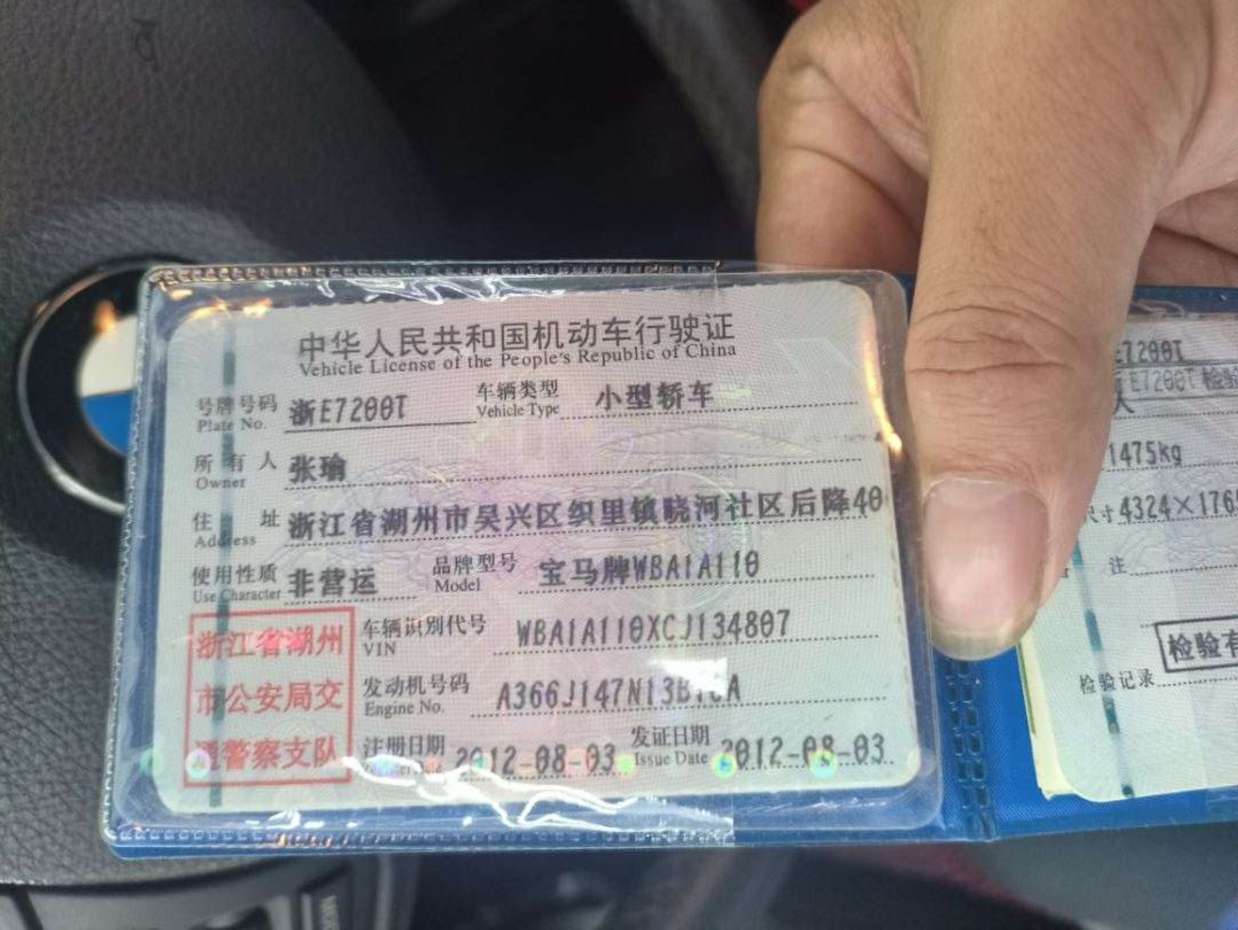 中华人民共和国机动车行驶证
Vehicle License of the People's Republic of China
号牌号码 浙E7200T 车辆类型 小型轿车
Plate No. Vehicle Type
所有人 张瑜
Owner
住址 浙江省湖州市吴兴区织里镇晓河社区后降40
Address
使用性质 非营运 品牌型号 宝马牌WBA1A110
Use Character Model
浙江省湖州
市公安局交
通警察支队
车辆识别代号 WBA1A110XCJ134807
VIN
发动机号码
Engine No.
注册日期 2012-08-03 发证日期 2012-08-03
Issue Date
E7200T
E7200T 检验
人
1475kg
寸 4324×176
注
检验有
检验记录